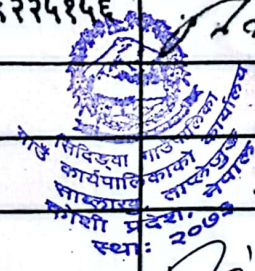 २२५१५६
सिदिङ्वा गाउँपालिका
गाउँ कार्यपालिकाको कार्यालय
साब्लाखु, ताप्लेजुङ
कोशी प्रदेश, नेपाल
स्था: २०७३